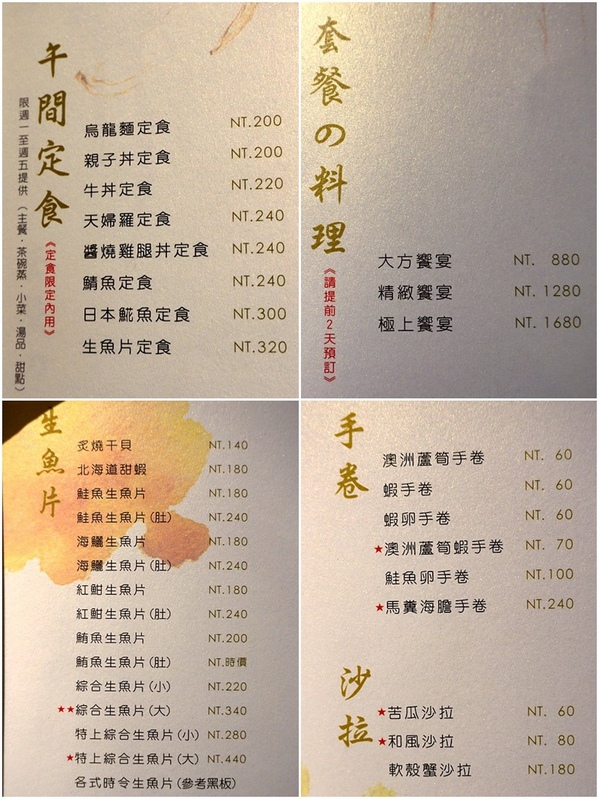 午間定食
《定食限定內用》
限週一至週五提供（主餐．茶碗蒸．小菜．湯品．甜點）
烏龍麵定食 NT.200
親子丼定食 NT.200
牛丼定食 NT.220
天婦羅定食 NT.240
醬燒雞腿丼定食 NT.240
鯖魚定食 NT.240
日本鯱魚定食 NT.300
生魚片定食 NT.320
套餐の料理
《請提前2天預訂》
大方饗宴 NT. 880
精緻饗宴 NT. 1280
極上饗宴 NT. 1680
生魚片
炙燒干貝 NT.140
北海道甜蝦 NT.180
鮭魚生魚片 NT.180
鮭魚生魚片(肚) NT.240
海鱺生魚片 NT.180
海鱺生魚片(肚) NT.240
紅魽生魚片 NT.180
紅魽生魚片(肚) NT.240
鮪魚生魚片 NT.200
鮪魚生魚片(肚) NT.時價
綜合生魚片(小) NT.220
★★綜合生魚片(大) NT.340
特上綜合生魚片(小) NT.280
★特上綜合生魚片(大) NT.440
各式時令生魚片(參考黑板)
手卷
澳洲蘆筍手卷 NT. 60
蝦手卷 NT. 60
蝦卵手卷 NT. 60
★澳洲蘆筍蝦手卷 NT. 70
鮭魚卵手卷 NT.100
★馬糞海膽手卷 NT.240
沙拉
★苦瓜沙拉 NT. 60
★和風沙拉 NT. 80
軟殼蟹沙拉 NT.180